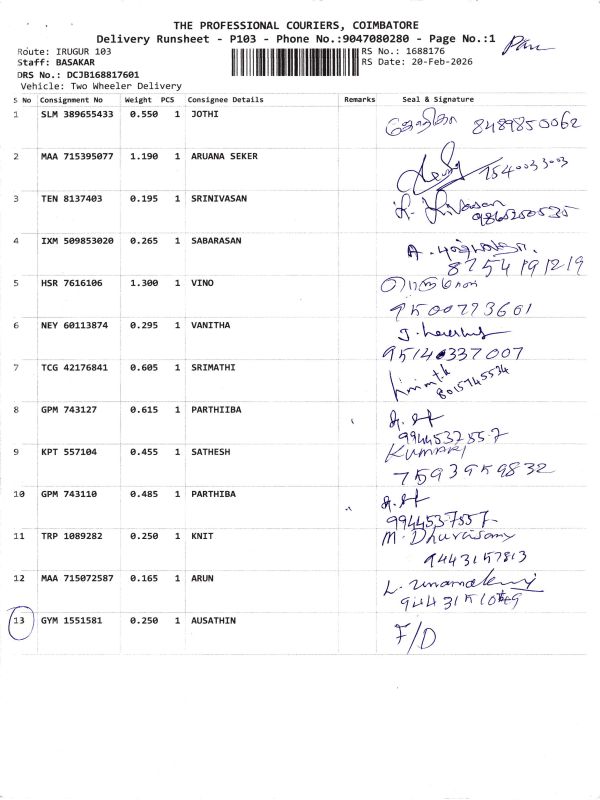 THE PROFESSIONAL COURIERS, COIMBATORE
Delivery Runsheet - P103 - Phone No.:9047080280 - Page No.:1
Route: IRUGUR 103 RS No.: 1688176
Staff: BASAKAR RS Date: 20-Feb-2026
DRS No.: DCJB168817601
Vehicle: Two Wheeler Delivery
S No Consignment No Weight PCS Consignee Details Remarks Seal & Signature
1 SLM 389655433 0.550 1 JOTHI 8489850062
2 MAA 715395077 1.190 1 ARUANA SEKER 7540033003
3 TEN 8137403 0.195 1 SRINIVASAN
9865250535
4 IXM 509853020 0.265 1 SABARASAN
8754191219
5 HSR 7616106 1.300 1 VINO
9500773601
6 NEY 60113874 0.295 1 VANITHA
95140337007
7 TCG 42176841 0.605 1 SRIMATHI
8015745534
8 GPM 743127 0.615 1 PARTHIIBA
9944537557
9 KPT 557104 0.455 1 SATHESH KUMARI
7593959832
10 GPM 743110 0.485 1 PARTHIBA
9944537557
11 TRP 1089282 0.250 1 KNIT M. Dhuraisamy
9443157813
12 MAA 715072587 0.165 1 ARUN
13 GYM 1551581 0.250 1 AUSATHIN F/D